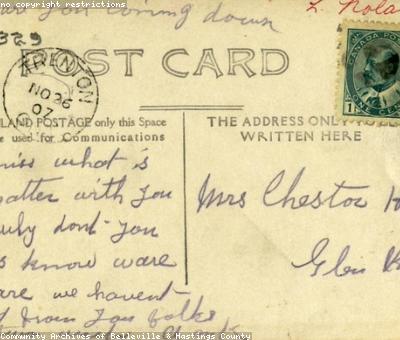 you coming down
329
POST CARD
TRENTON
NO 26
07
CANADA POSTAGE
1
CENT
LAND POSTAGE only this Space
be used for Communications
THE ADDRESS ONLY
WRITTEN HERE
miss what is
matter with you
dont you
know ware
are we havent
from you folks
Mrs Chestor
Glen
Community Archives of Belleville & Hastings County